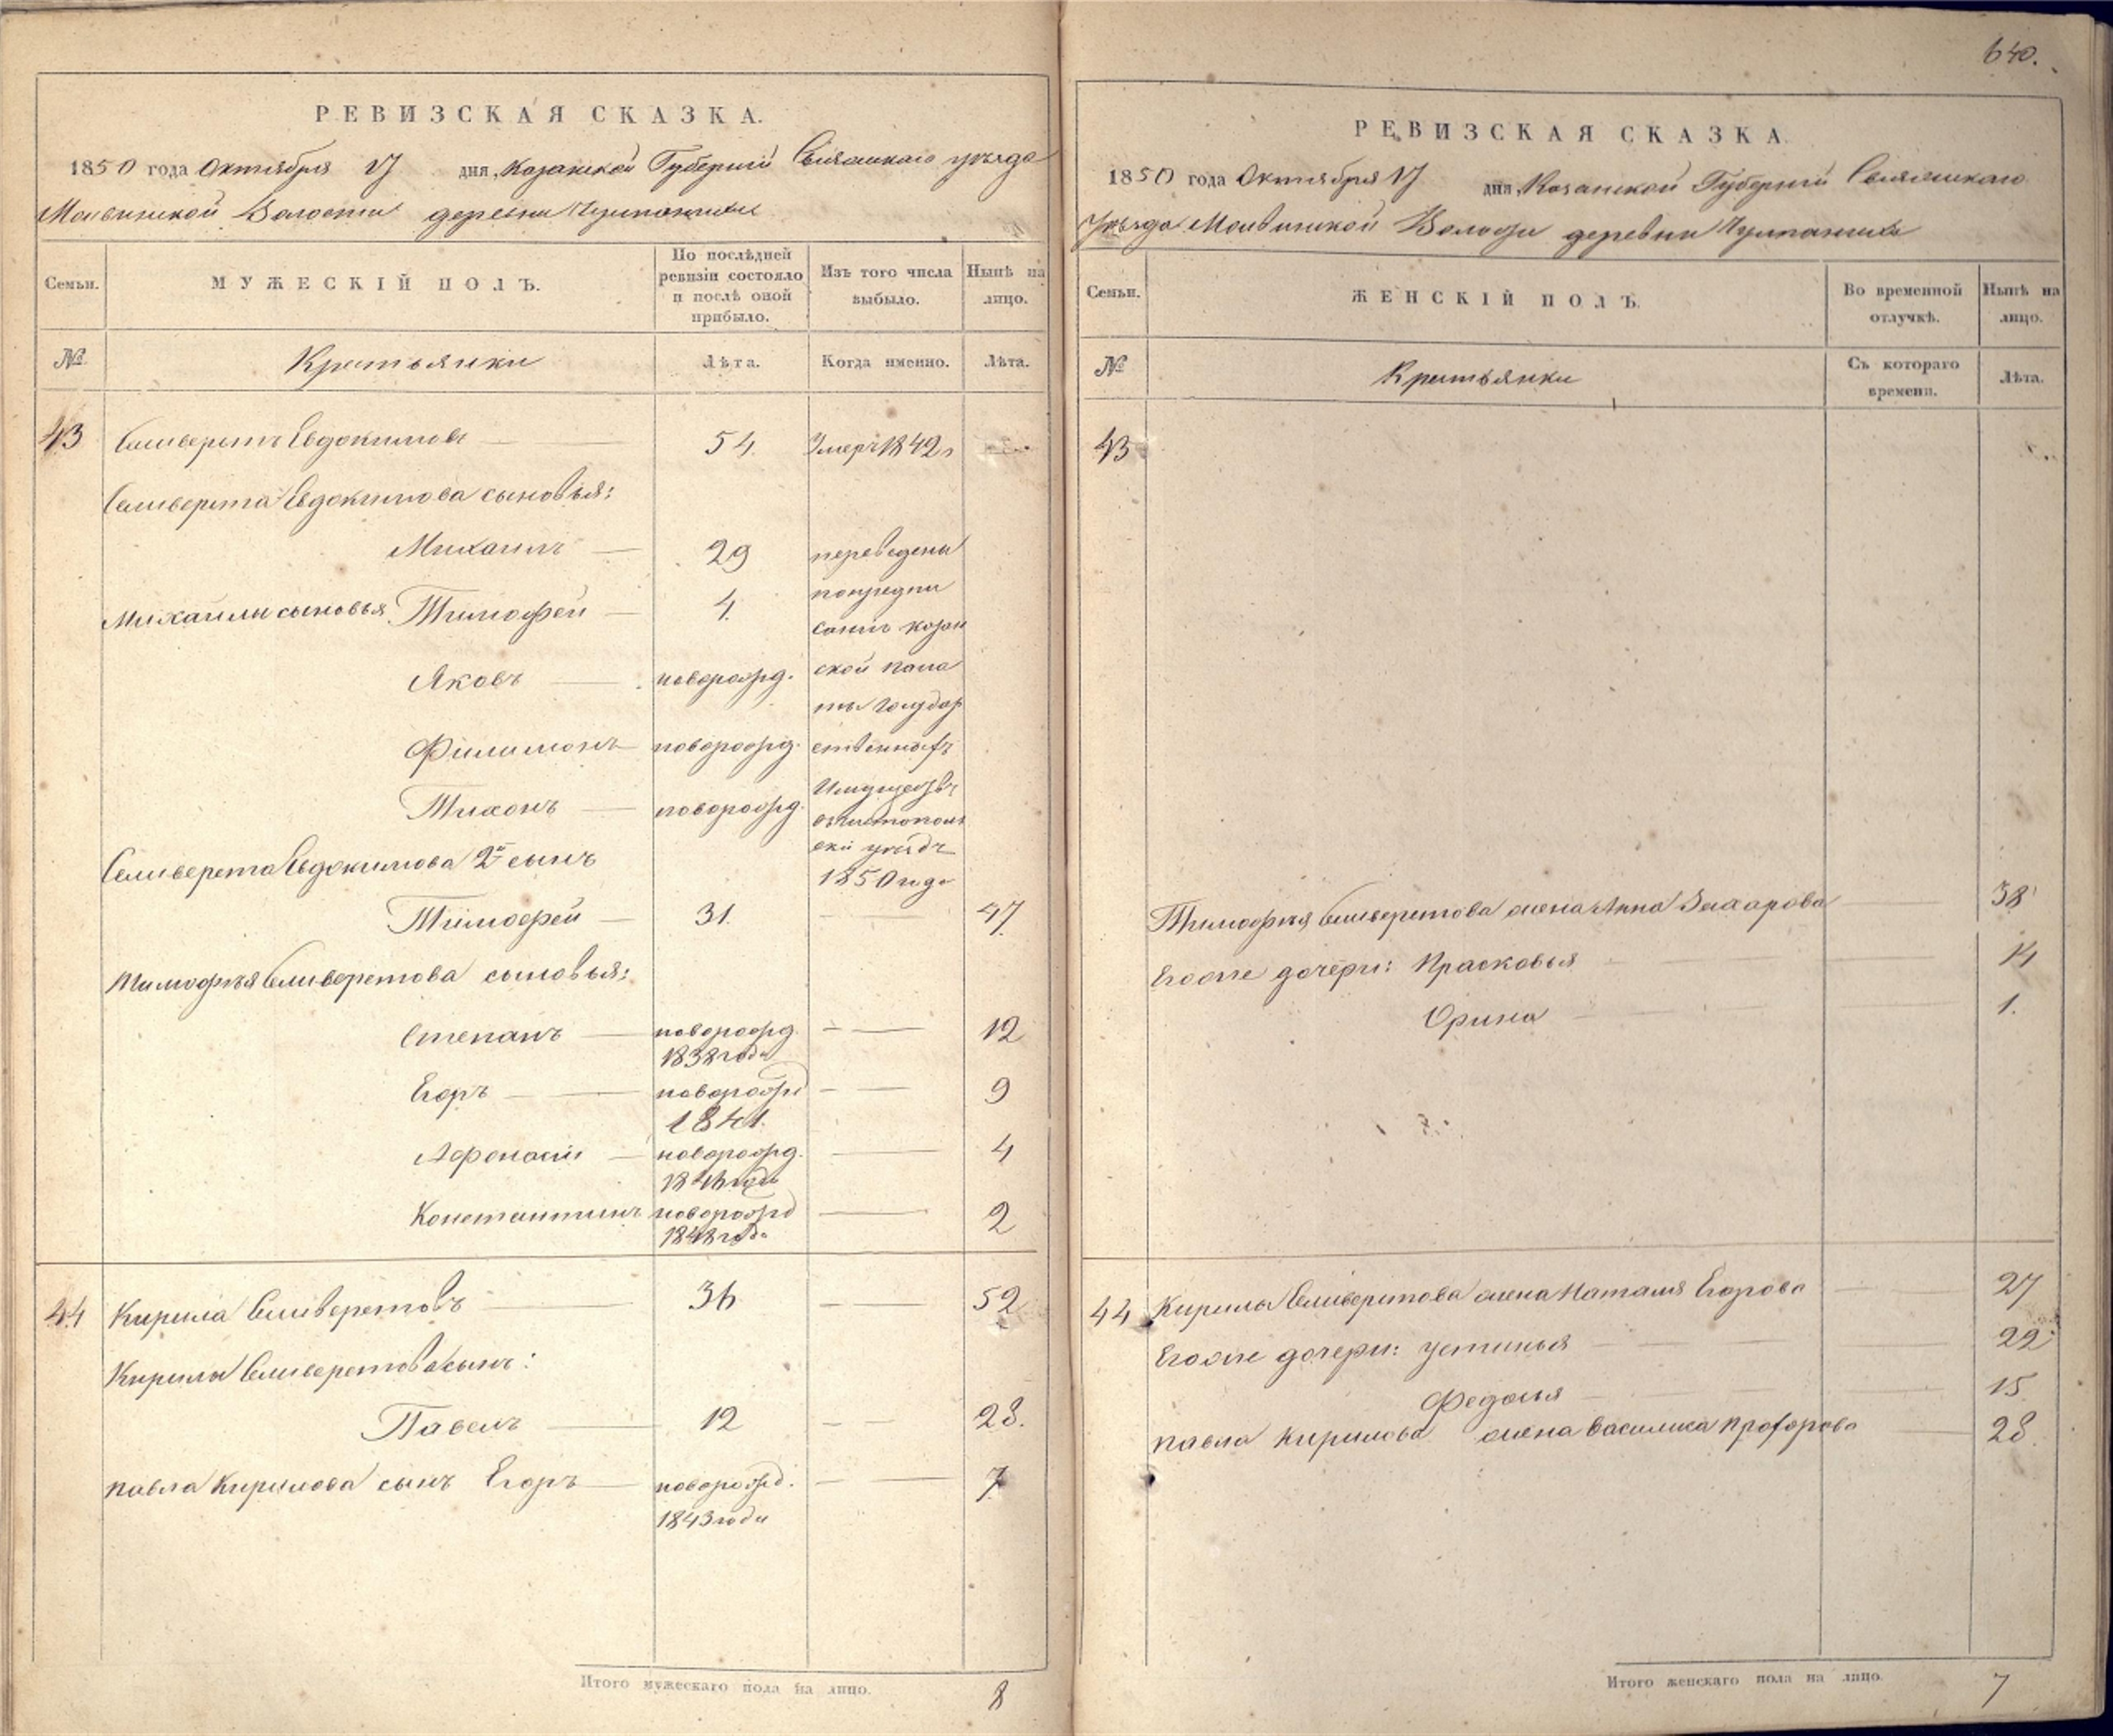 640.
РЕВИЗСКАЯ СКАЗКА.
1850 года Октября 17 дня, Казанской Губернии Свіяжскаго уѣзда
Волости деревни
Семьи.
МУЖЕСКІЙ ПОЛЪ.
По послѣдней ревизіи состояло и послѣ оной прибыло.
Изъ того числа выбыло.
Нынѣ на лицо.
№
Крестьянки
Лѣта.
Когда именно.
Лѣта.
43 Селиверстъ Евдокимовъ 54. Умеръ 1842
Селиверста Евдокимова сыновья:
Михаилъ 29 переведены
Михаилы сыновья Тимофей 4.
Яковъ новорожд.
Филимонъ новорожд.
Тихонъ новорожд.
по предпи
санію казан
ской пала
ты Государ
ственныхъ
Имуществъ
въ Чистополь
скій уѣздъ
1850 года
Селиверста Евдокимова 2й сынъ
Тимофей 31. 47.
Тимофѣя Селиверстова сыновья:
Степанъ новорожд. 12
1838 года
Егоръ новорожд 9
1841.
Афонасій новорожд. 4
1846 года
Константинъ новорожд 2
1848 года
44 Кирила Селиверстовъ 36 52
Кирилы Селиверстова сынъ:
Павелъ 12 28.
Павла Кирилова сынъ Егоръ новорожд. 7
1843 года
Итого мужескаго пола на лицо. 8
РЕВИЗСКАЯ СКАЗКА
1850 года Октября 17 дня, Казанской Губерніи Свіяжскаго
Уѣзда Волости деревни
Семьи.
ЖЕНСКІЙ ПОЛЪ.
Во временной отлучкѣ.
Нынѣ на лицо.
№
Крестьянки
Съ котораго времени.
Лѣта.
43
Тимофѣя Селиверстова жена Анна Захарова 38
Егоже дочери: Прасковья 14
Орина 1.
44 Кирилы Селиверстова жена Наталья Егорова 27
Егоже дочери: Устинья 22
Федосья 15
Павла Кирилова жена Василиса Прохорова 28
Итого женскаго пола на лицо. 7